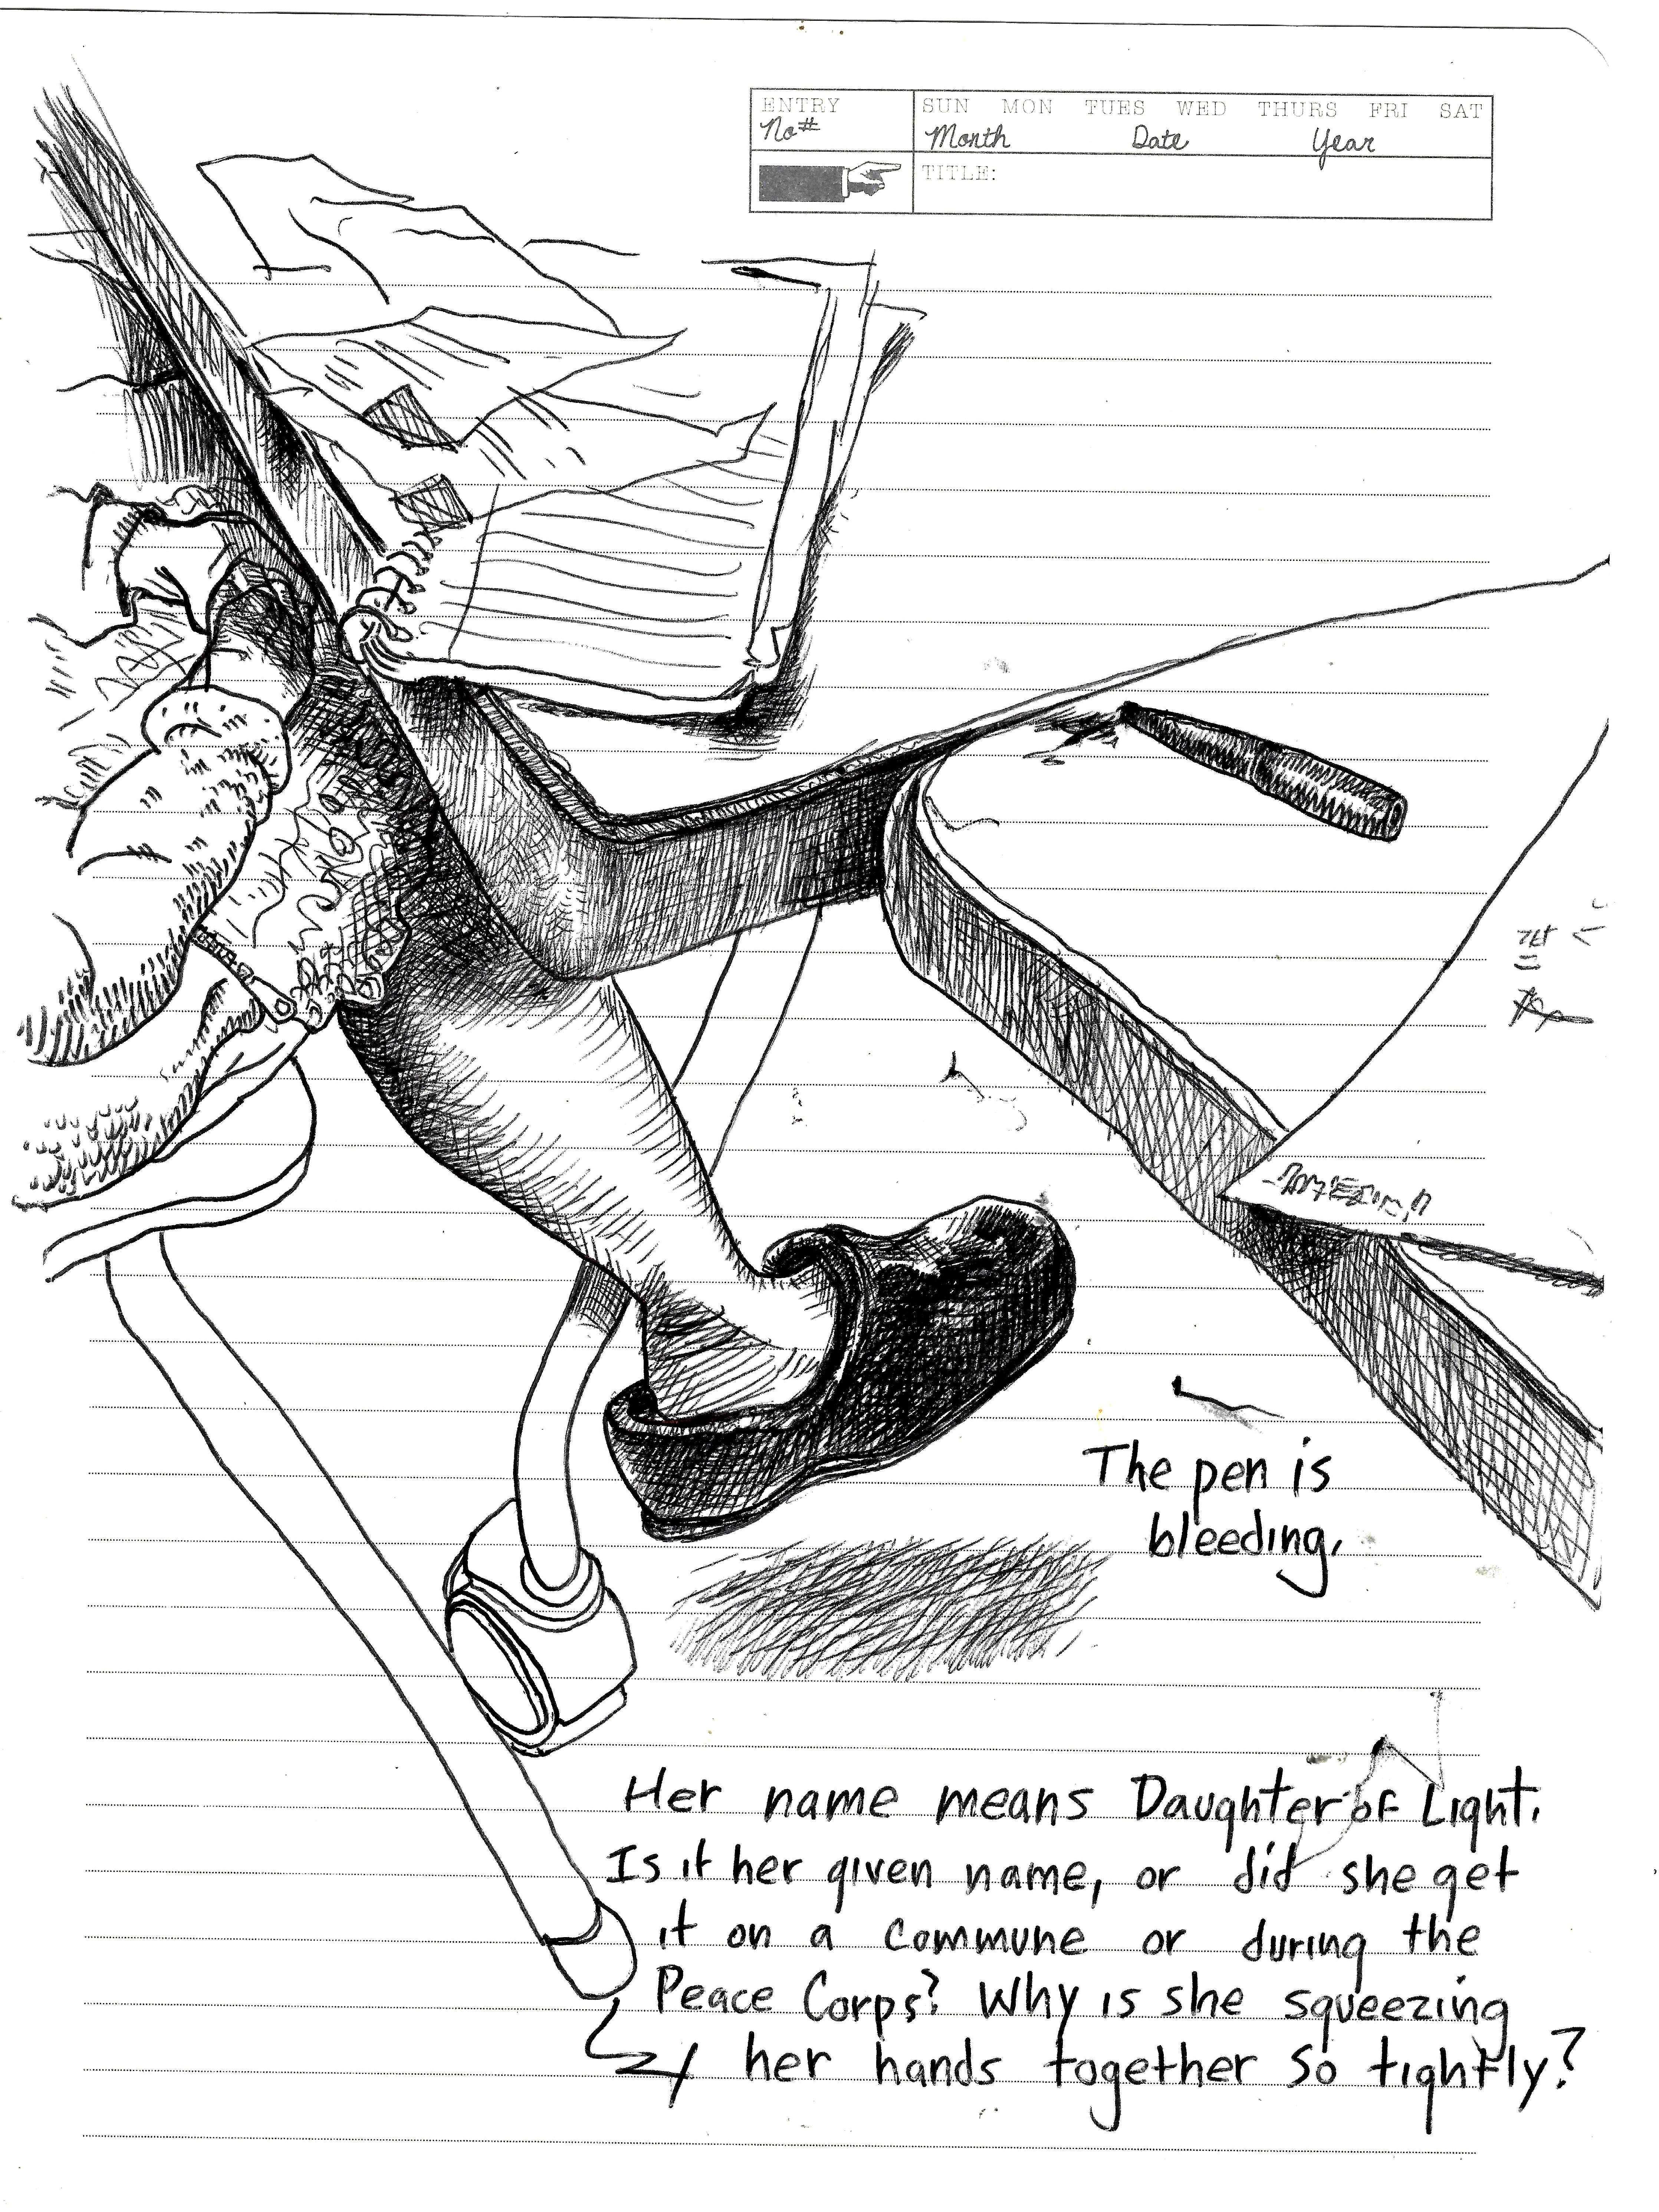 ENTRY
No#
SUN MON TUES WED THURS FRI SAT
Month Date Year
TITLE:
The pen is
bleeding.
Her name means Daughter of Light.
Is it her given name, or did she get
it on a commune or during the
Peace Corps? Why is she squeezing
her hands together so tightly?